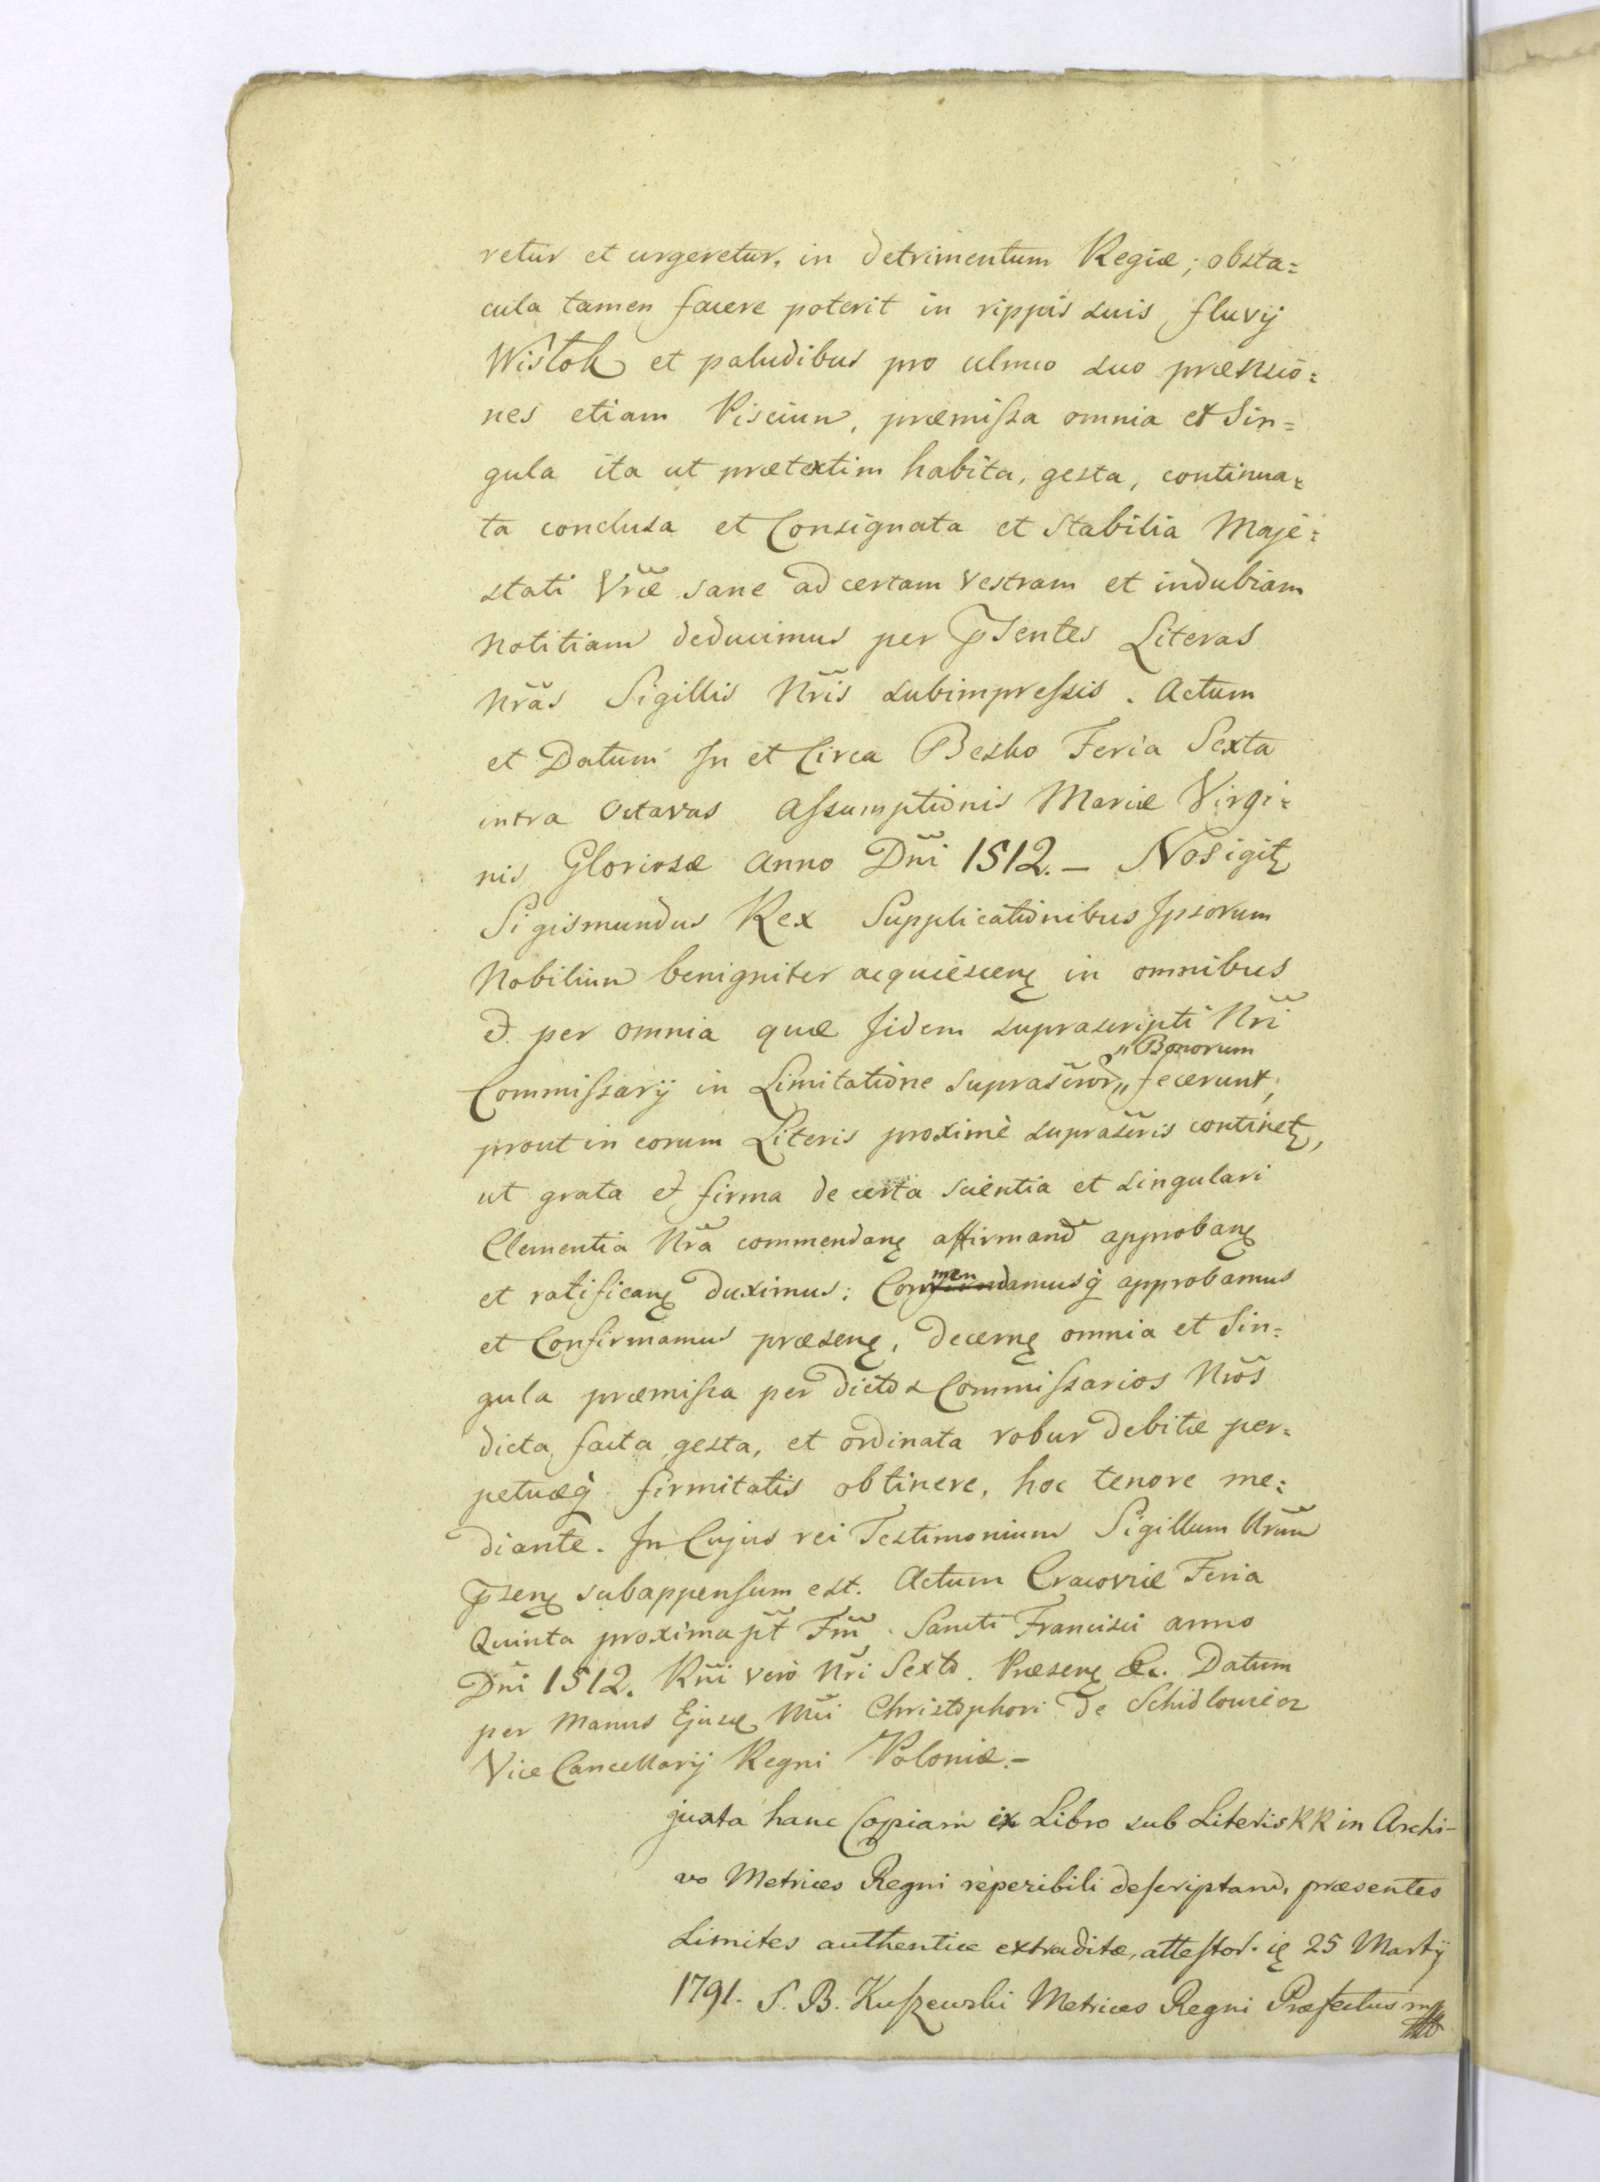 retur et urgeretur, in detrimentum Regiæ; obsta=
cula tamen facere poterit in rippis suis fluvij
Wisłok et paludibus pro ulmco suo prænsio=
nes etiam Piscium, præmissa omnia et Sin=
gula ita ut prætextim habita, gesta, continua=
ta conclusa et Consignata et Stabilia Maje=
stati Vræ sane ad certam vestram et indubiam
Notitiam deducimus per Psentes Literas
Nras Sigillis Nris subimpressis. Actum
et Datum In et Circa Besko Feria Sexta
intra Octavas Assumptionis Mariæ Virgi=
nis Gloriosæ Anno Dni 1512. – Nos igitꝫ
Sigismundus Rex Supplicationibus Ipsorum
Nobilium benigniter acquiescenꝫ in omnibus
et per omnia quæ Iidem suprascripti Nri
Commissarij in Limitatione suprascror „ „Bonorum fecerunt,
prout in eorum Literis proximè suprascris continetꝫ,
ut grata et firma de certa scientia et singulari
Clementia Nra commendanꝫ affirmand approbanꝫ
et ratificanꝫ duximus: Commendamusq approbamus
et Confirmamus præsenꝫ, decernꝫ omnia et Sin=
gula præmissa per dictos Commissarios Nros
dicta, facta gesta, et ordinata robur debitæ per=
petuæq firmitatis obtinere, hoc tenore me=
diante. In Cujus rei Testimonium Sigillum Nrum
Psenꝫ subappensum est. Actum Cracoviæ Feria
Quinta proxima pt Fm Sancti Francisci anno
Dni 1512. Rni verò Nri Sexto. Præsenꝫ &c. Datum
per Manus Ejusꝫ Mci Christophori de Schidlowiec
Vice Cancellarij Regni Poloniæ. –
juxta hanc Copiam ex Libro sub Literis KK in Archi-
vo Metrices Regni reperibili descriptam, præsentes
Limites authenticè extraditæ, attestor. iꝫ 25 Martij
1791. S. B. Kuszewski Metrices Regni Præfectus mp